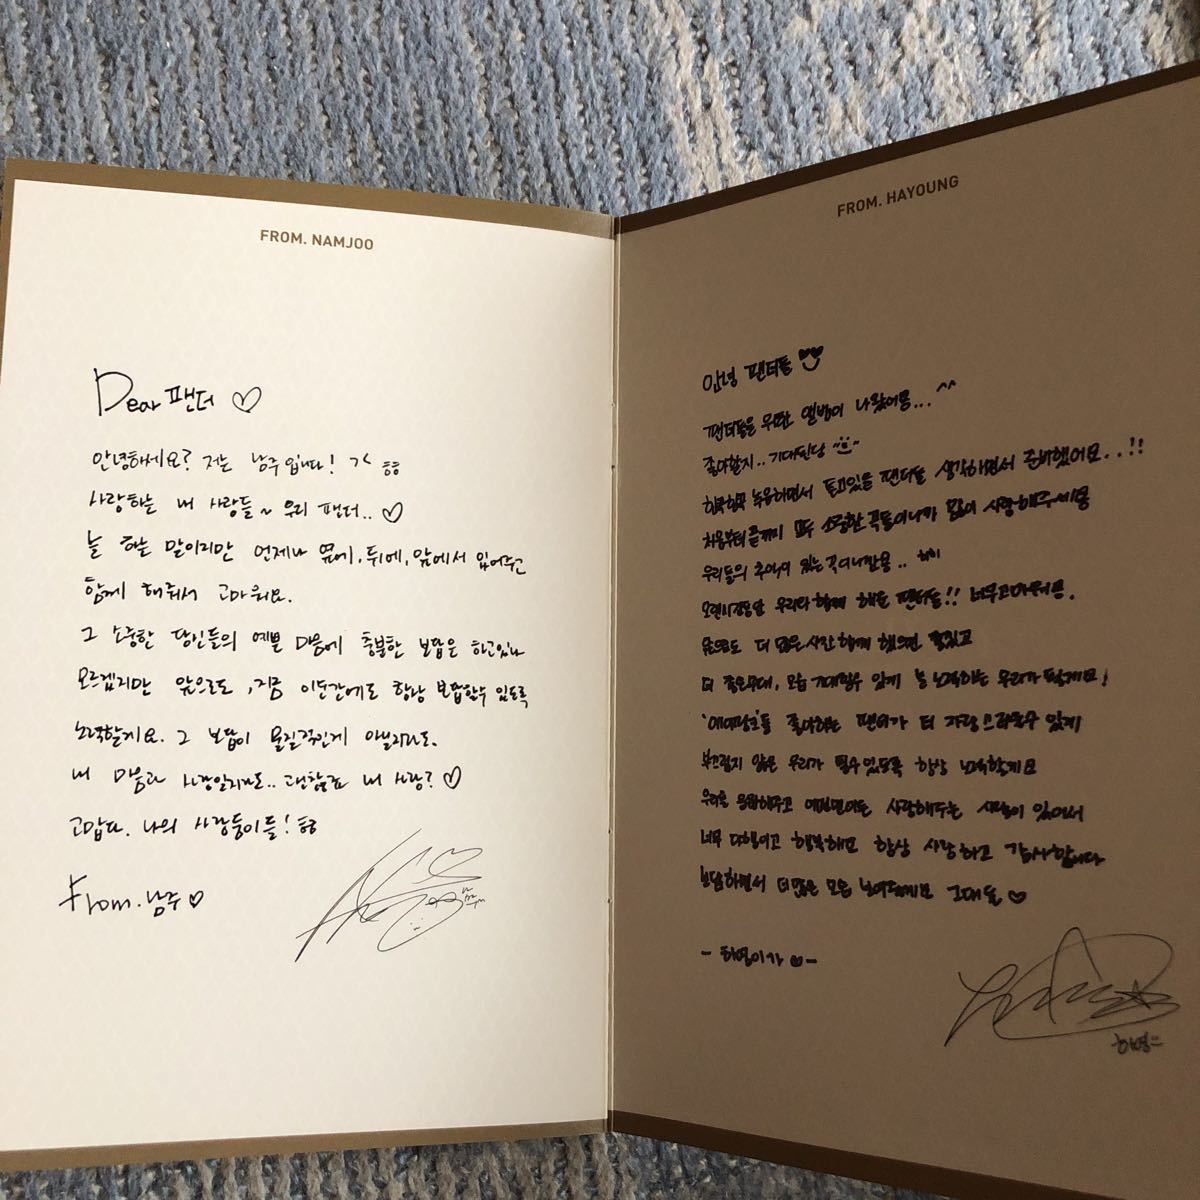 FROM. NAMJOO
Dear 팬더 ♡
안녕하세요? 저는 남주입니다! ㄱㅅ ㅎㅎ
사랑하는 내 사람들~ 우리 팬더.. ♡
늘 하는 말이지만 언제나 옆에, 뒤에, 앞에서 있어주고
함께 해줘서 고마워요.
그 소중한 당신들의 예쁜 마음에 충분한 보답은 하고있나
모르겠지만 앞으로도, 지금 이순간에도 항상 보답할수 있도록
노력할게요. 그 보답이 물질적인게 아닐지라도.
내 마음과 사랑일지라도.. 괜찮죠 내 사랑? ♡
고맙다. 나의 사랑둥이들! ㅎㅎ
From. 남주 ♡
FROM. HAYOUNG
안녕 팬더들
팬더들을 위한 앨범이 나왔어용... ^^
좋아할지.. 기대된당
녹음하면서 듣고있을 팬더들 생각하면서 준비했어요..!!
처음부터 끝까지 모두 소중한 곡들이니까 많이 사랑해주세용
우리들의 추억이 있는 곡이니깐용.. 히히
오랜시간동안 우리와 함께 해준 팬더들!! 너무고마워용.
앞으로도 더 많은시간 함께 했으면 좋겠고
더 좋은무대, 모습 기대할수 있게 늘 노력하는 우리가 될게요!
'에이핑크'를 좋아하는 팬더가 더 자랑스러울수 있게
부끄럽지 않은 우리가 될수있도록 항상 노력할게요
우리를 응원해주고 에이핑크를 사랑해주는 사람이 있어서
너무 다행이고 행복해요 항상 사랑하고 감사합니다
보답하면서 더 많은 모습 보여줄게요 그대들 ♡
- 하영이가 ♡ -
하영